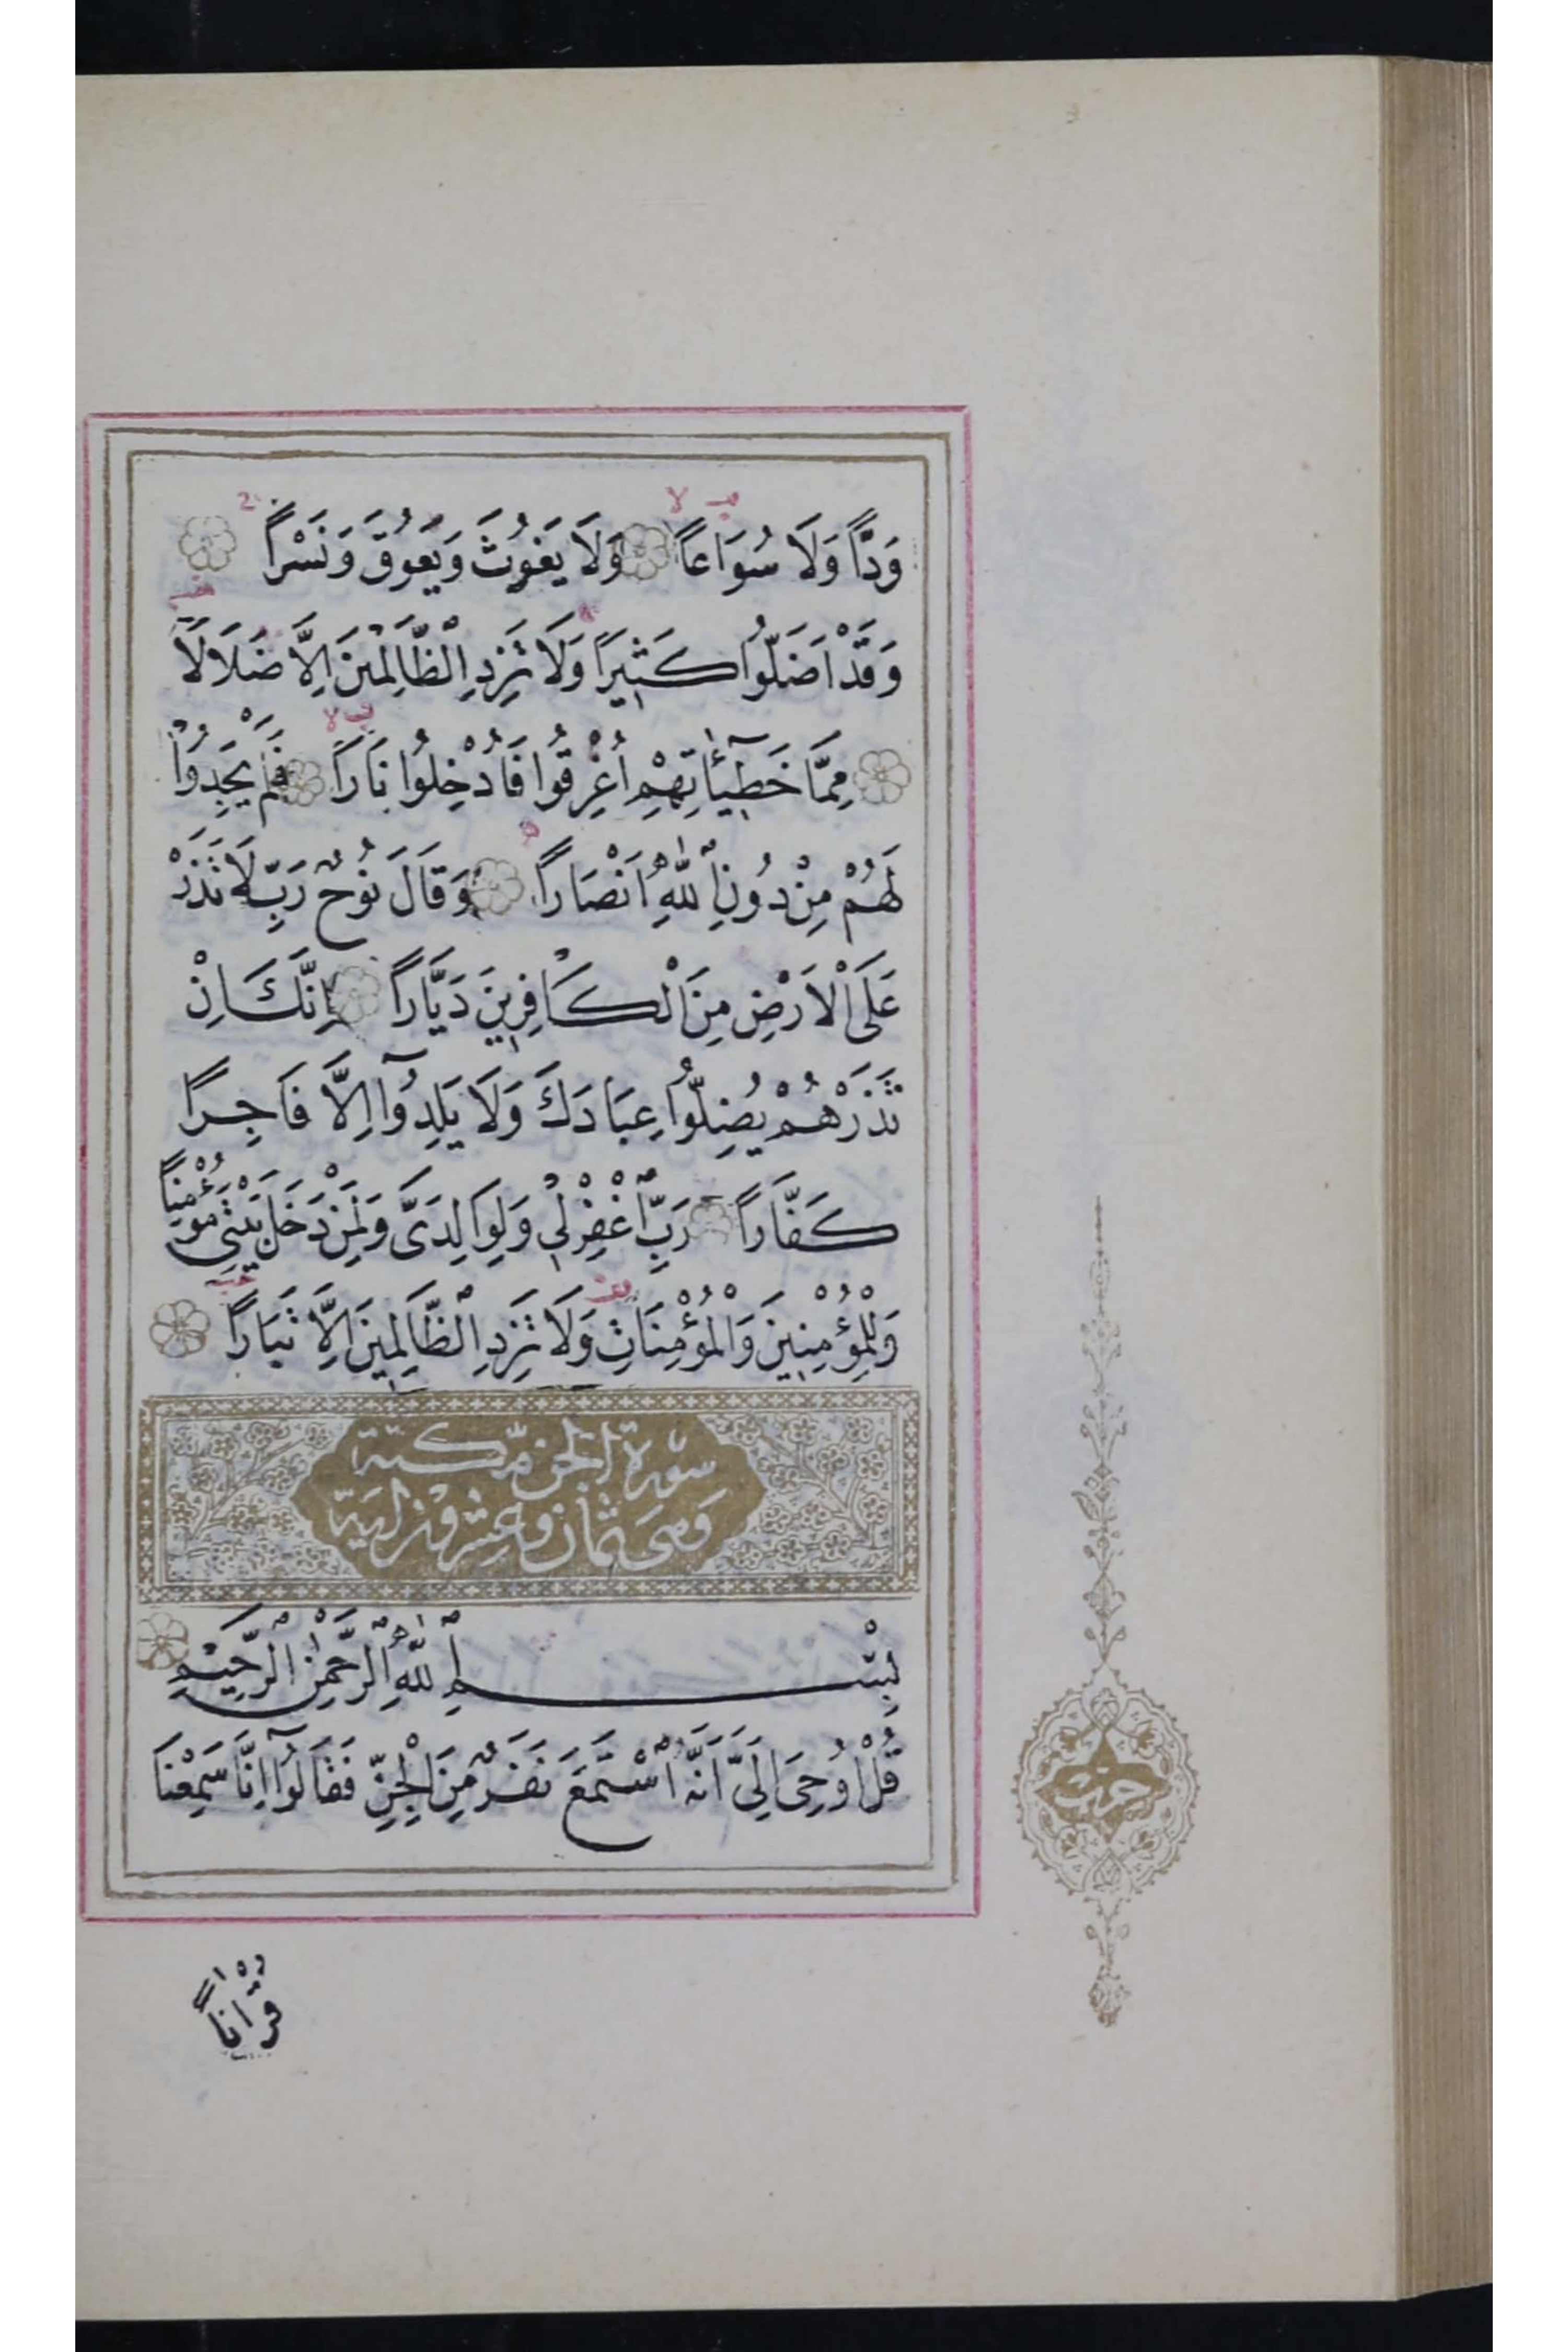 وَدًّا وَلَا سُوَاعًا وَلَا يَغُوثَ وَيَعُوقَ وَنَسْرًا
وَقَدْ اَضَلُّوا كَثِيرًا وَلَا تَزِدِ الظَّالِمِينَ اِلَّا ضَلَالًا
مِمَّا خَطِيٓـَٔاتِهِمْ اُغْرِقُوا فَاُدْخِلُوا نَارًا فَلَمْ يَجِدُوا
لَهُمْ مِنْ دُونِ اللّٰهِ اَنْصَارًا وَقَالَ نُوحٌ رَبِّ لَا تَذَرْ
عَلَى الْاَرْضِ مِنَ الْكَافِرِينَ دَيَّارًا اِنَّكَ اِنْ
تَذَرْهُمْ يُضِلُّوا عِبَادَكَ وَلَا يَلِدُوٓا اِلَّا فَاجِرًا
كَفَّارًا رَبِّ اغْفِرْ لِي وَلِوَالِدَيَّ وَلِمَنْ دَخَلَ بَيْتِيَ مُؤْمِنًا
وَلِلْمُؤْمِنِينَ وَالْمُؤْمِنَاتِ وَلَا تَزِدِ الظَّالِمِينَ اِلَّا تَبَارًا
سورة الجن مكية
وهى ثمان وعشرون اية
بِسْمِ اللّٰهِ الرَّحْمٰنِ الرَّحِيمِ
قُلْ اُوحِيَ اِلَيَّ اَنَّهُ اسْتَمَعَ نَفَرٌ مِنَ الْجِنِّ فَقَالُوٓا اِنَّا سَمِعْنَا
حزب
قُرْاٰنًا